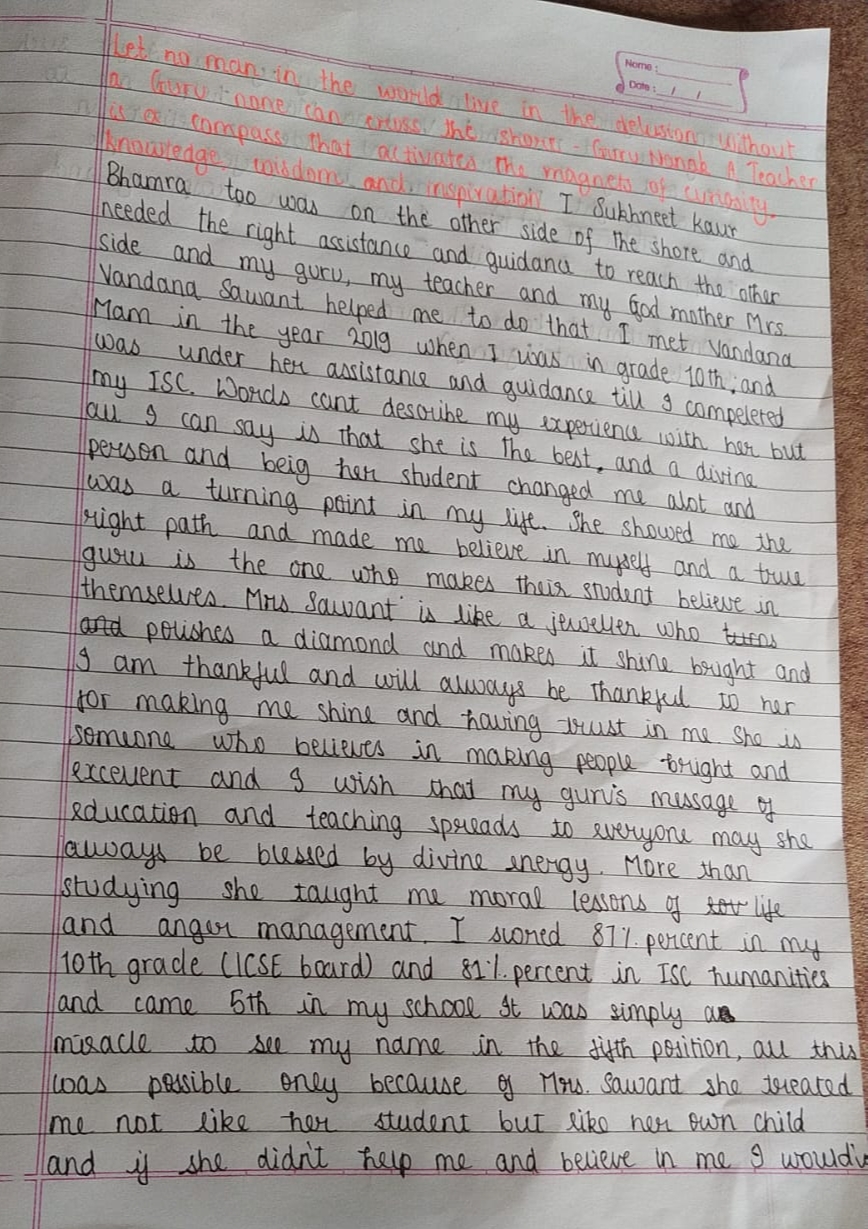 Name :
Date : / /
Let no man in the world live in the delusion without
a Guru none can cross the shore - Guru Nanak A Teacher
is a compass that activates the magnets of curiosity,
knowledge, wisdom and inspiration I Sukhneet Kaur
Bhamra too was on the other side of the shore and
needed the right assistance and guidance to reach the other
side and my guru, my teacher and my God mother Mrs
Vandana Sawant helped me to do that. I met Vandana
Mam in the year 2019 when I was in grade 10th, and
was under her assistance and guidance till I compeleted
my ISC. Words cant describe my experience with her but
all I can say is that she is the best, and a divine
person and beig her student changed me alot and
was a turning point in my life. She showed me the
right path and made me believe in myself and a true
guru is the one who makes their student believe in
themselves. Mrs Sawant is like a jeweller who turns
and polishes a diamond and makes it shine bright and
I am thankful and will always be thankful to her
for making me shine and having trust in me she is
someone who believes in making people bright and
excellent and I wish that my guru's message of
education and teaching spreads to everyone may she
always be blessed by divine energy. More than
studying she taught me moral lessons of life
and anger management. I scored 87% percent in my
10th grade (ICSE board) and 81% percent in ISC humanities
and came 5th in my school It was simply a
miracle to see my name in the fifth position, all this
was possible only because of Mrs. Sawant she treated
me not like her student but like her own child
and if she didn't help me and believe in me I